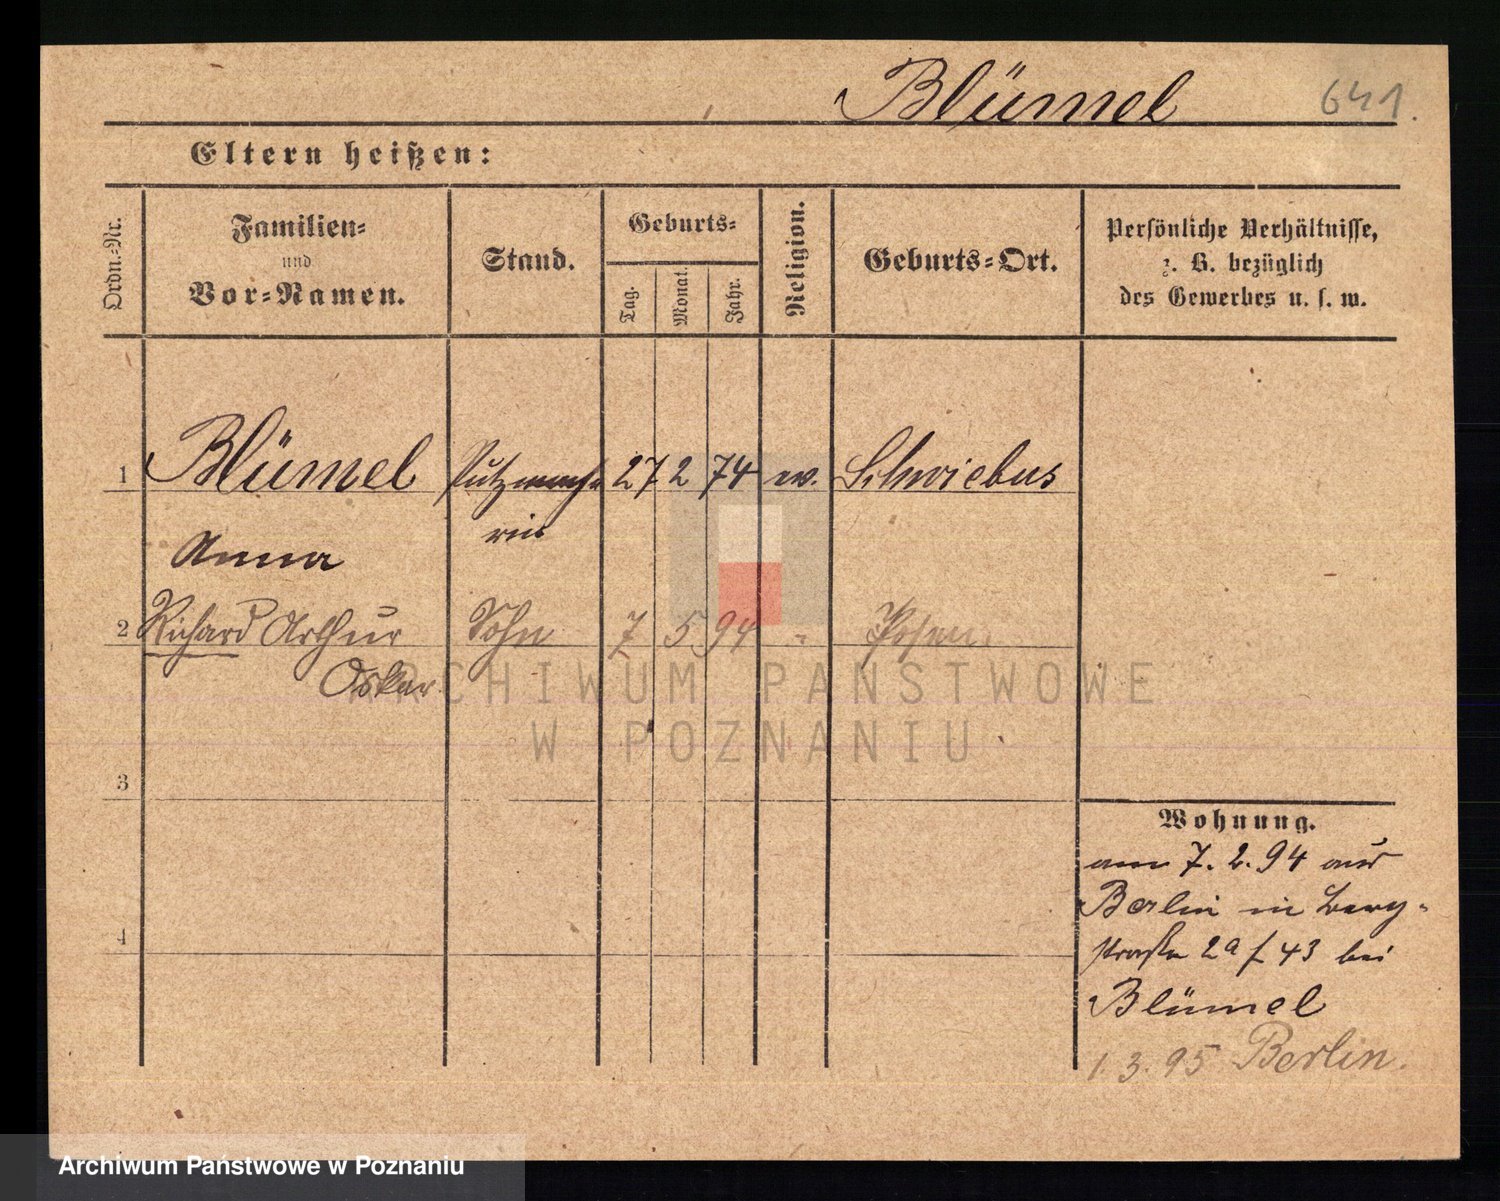 Blümel
641.
Eltern heißen:
Ordn.-Nr.
Familien-
und
Vor-Namen.
Stand.
Geburts-
Tag.
Monat.
Jahr.
Religion.
Geburts-Ort.
Persönliche Verhältnisse,
z. B. bezüglich
des Gewerbes u. s. w.
1 Blümel Putzmache 27 2 74 ev. Schwiebus
rin
Anna
2 Richard Arthur Sohn 7 5 94 " Posen
Oskar
ARCHIWUM PAŃSTWOWE
W POZNANIU
3
4
Wohnung.
am 7. 2. 94 aus
Berlin in Berg-
straße 2a / 43 bei
Blümel
1. 3. 95 Berlin.
Archiwum Państwowe w Poznaniu